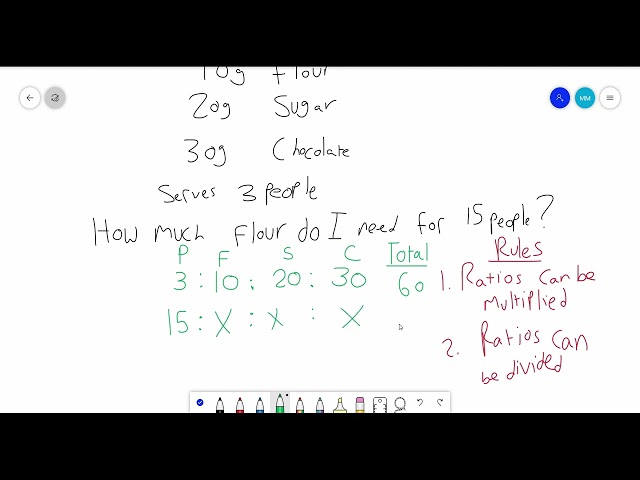 10g Flour
20g Sugar
30g Chocolate
Serves 3 people
How much flour do I need for 15 people?
P F S C Total
3 : 10 : 20 : 30 60
15 : X : X : X
Rules
1. Ratios can be
multiplied
2. Ratios can
be divided
MM